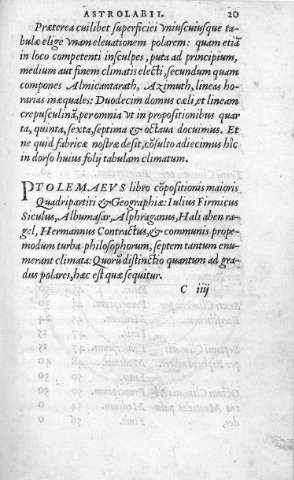 ASTROLABII. 20
Præterea cuilibet superficiei vniuscuiusque ta-
bulæ elige vnam eleuationem polarem: quam etiã
in loco competenti insculpes, puta ad principium,
medium aut finem climatis electi, secundum quam
compones Almicantarath, Azimuth, lineas ho-
rarias inæquales: Duodecim domus cæli, et lineam
crepusculinã, per omnia vt in propositionibus quar
ta, quinta, sexta, septima & octaua docuimus. Et
ne quid fabricæ nostræ desit, cõsulto adiecimus hîc
in dorso huius folij tabulam climatum.
PTOLEMAEVS libro cõpositionis maioris
Quadripartiti & Geographiæ: Iulius Firmicus
Siculus, Albumasar, Alphraganus, Hali aben ra-
gel, Hermannus Contractus, & communis prope-
modum turba philosophorum, septem tantum enu-
merant climata: Quorũ distinctio quantum ad gra-
dus polares, hæc est quæ sequitur.
C iiij